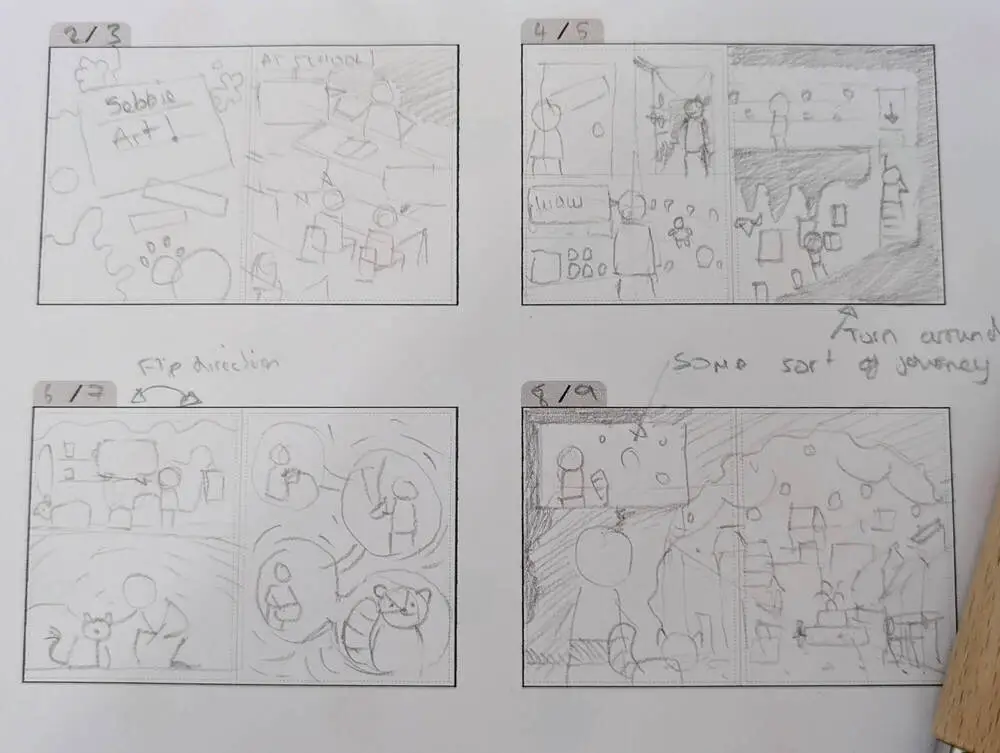 2/3
Sebbie
Art!
AT SCHOOL!
4/5
WOW
Turn around
Flip direction
Some sort of journey
6/7
8/9